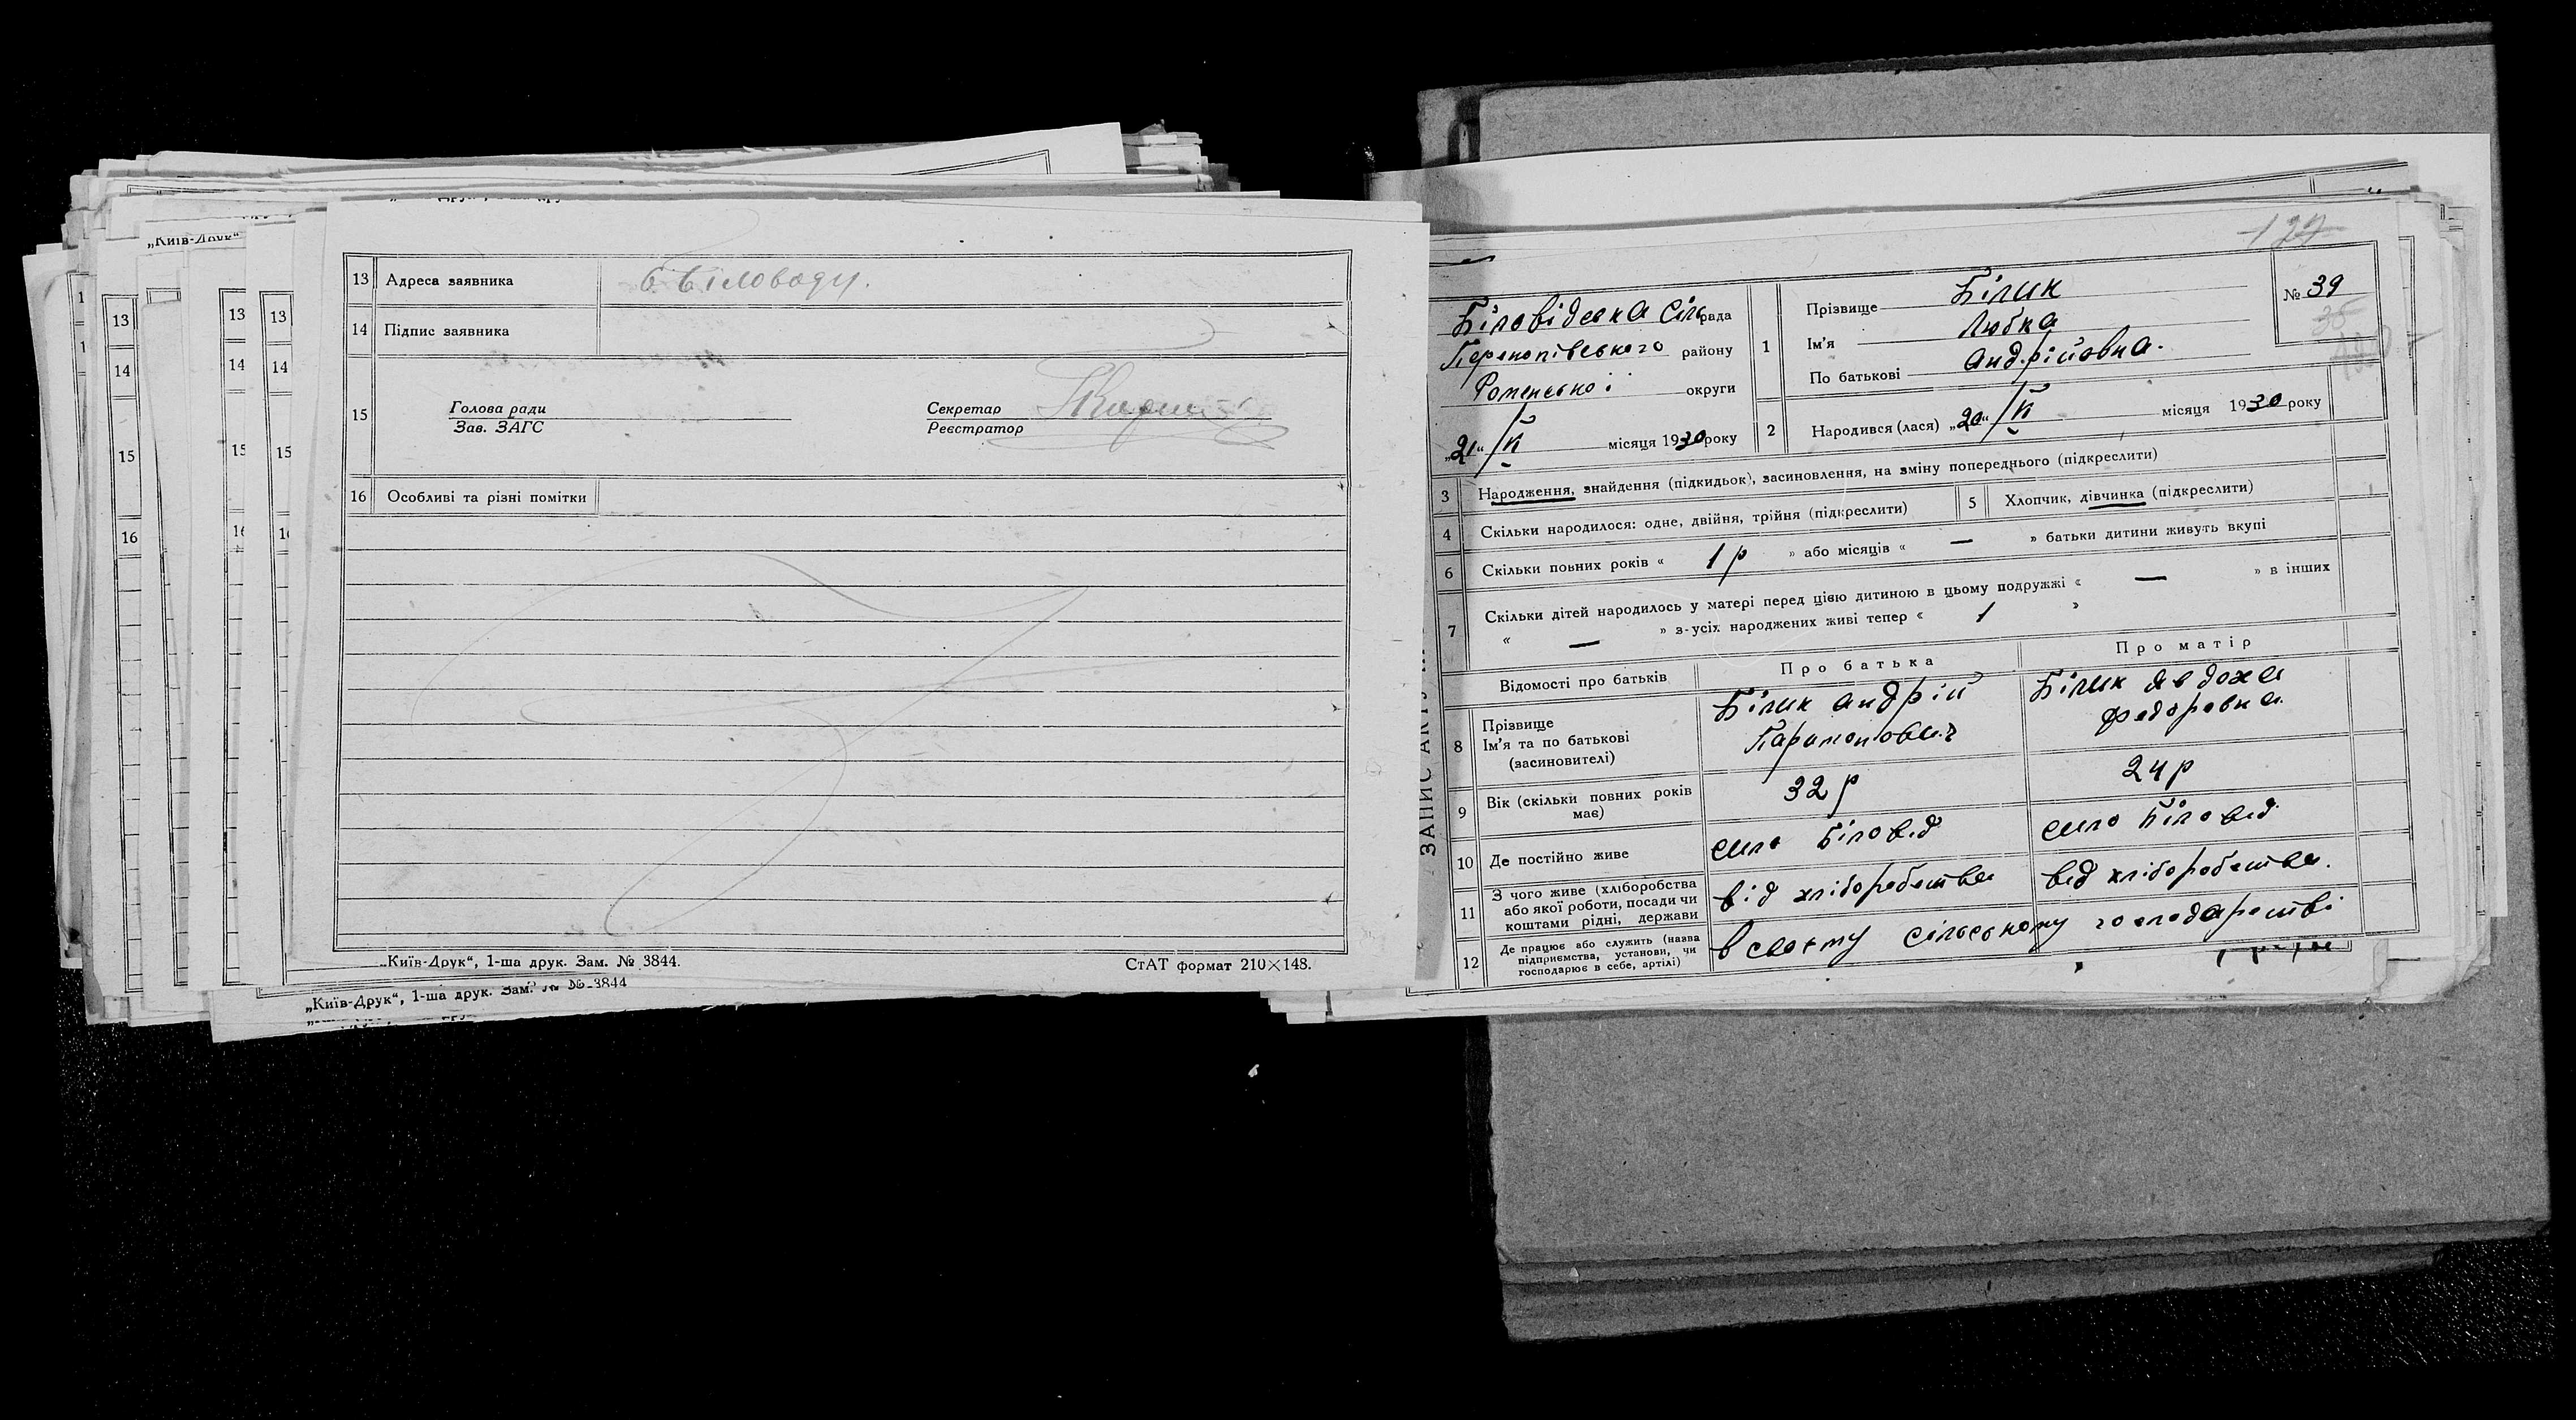 „Київ-Друк“
13 Адреса заявника с Біловоди.
14 Підпис заявника
15 Голова ради
Зав. ЗАГС
Секретар
Реєстратор
16 Особливі та різні помітки
„Київ-Друк“, 1-ша друк. Зам. № 3844.
СтАТ формат 210×148.
„Київ-Друк“, 1-ша друк. Зам. № 3844
13
14
15
16
13
14
15
16
13
14
15
127
Біловідська Сільрада
Перекопівського району
Роменської округи
„21“ / II місяця 1930 року
1 Прізвище Білик
Ім'я Любка
По батькові Андрійовна.
№ 39
2 Народився (лася) „20“ / II місяця 1930 року
3 Народження, знайдення (підкидьок), засиновлення, на зміну попереднього (підкреслити)
4 Скільки народилося: одне, двійня, трійня (підкреслити)
5 Хлопчик, дівчинка (підкреслити)
6 Скільки повних років « 1 р » або місяців « — » батьки дитини живуть вкупі
7 Скільки дітей народилось у матері перед цією дитиною в цьому подружжі « — » в інших
« — » з-усіх народжених живі тепер « 1 »
Відомості про батьків
Про батька
Про матір
8 Прізвище
Ім'я та по батькові
(засиновителі)
Білик Андрій
Парамонович
Білик Явдоха
Федоровна.
9 Вік (скільки повних років
має)
32 р
24 р
10 Де постійно живе
село Біловод
село Біловод
11 З чого живе (хліборобства
або якої роботи, посади чи
коштами рідні, держави
від хліборобства
від хліборобства.
12 Де працює або служить (назва
підприємства, установи, чи
господарює в себе, артілі)
в своєму сільському господарстві
ЗАПИС АКТУ